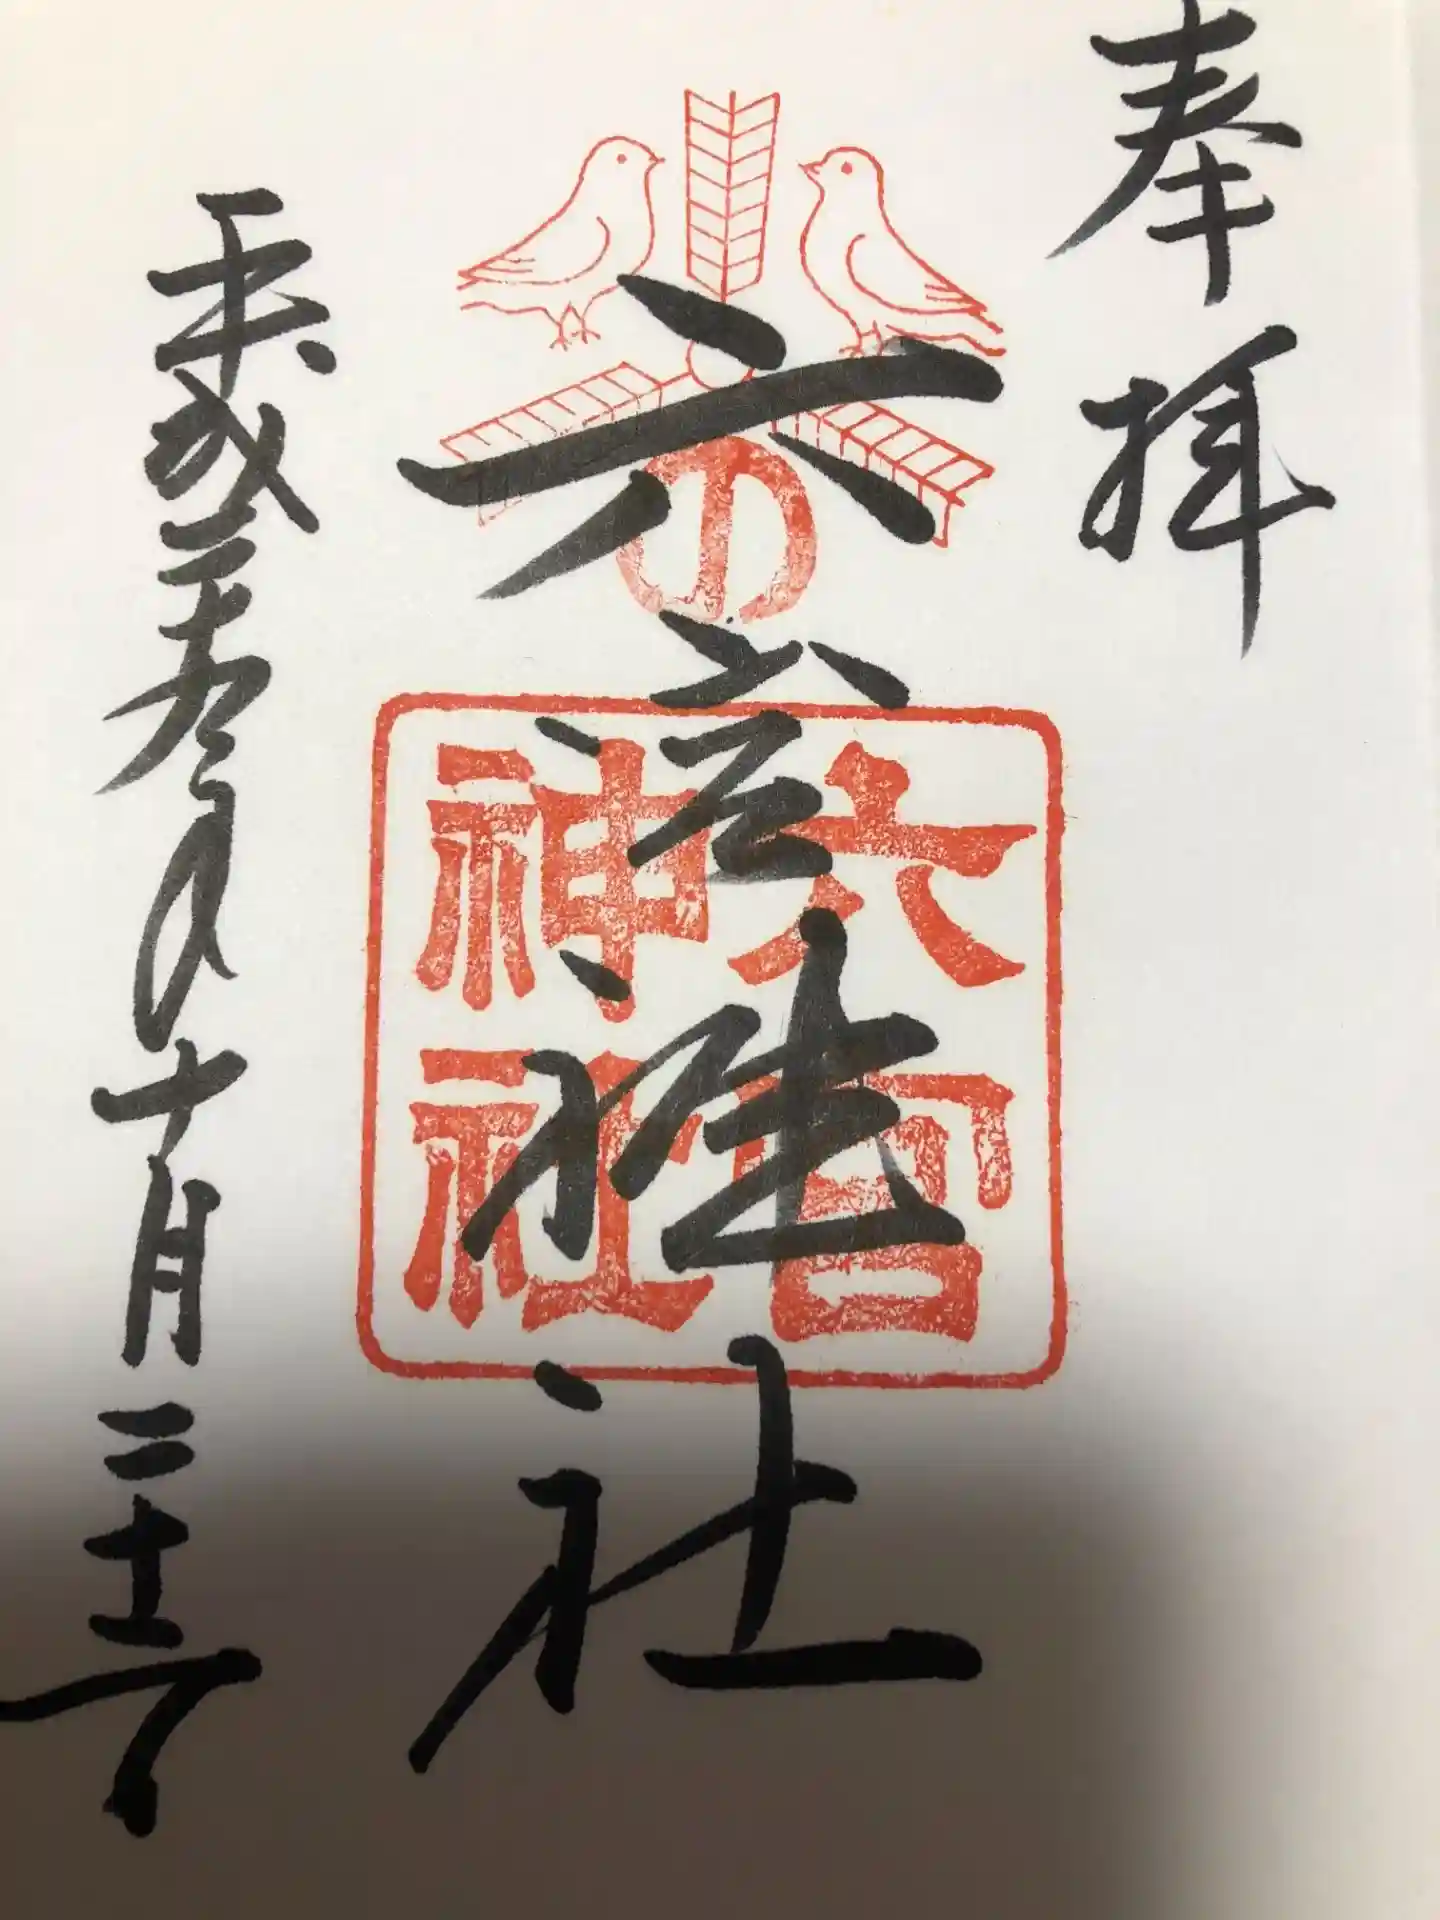 奉拝
六宮神社
六宮神社
平成三十年十月二十